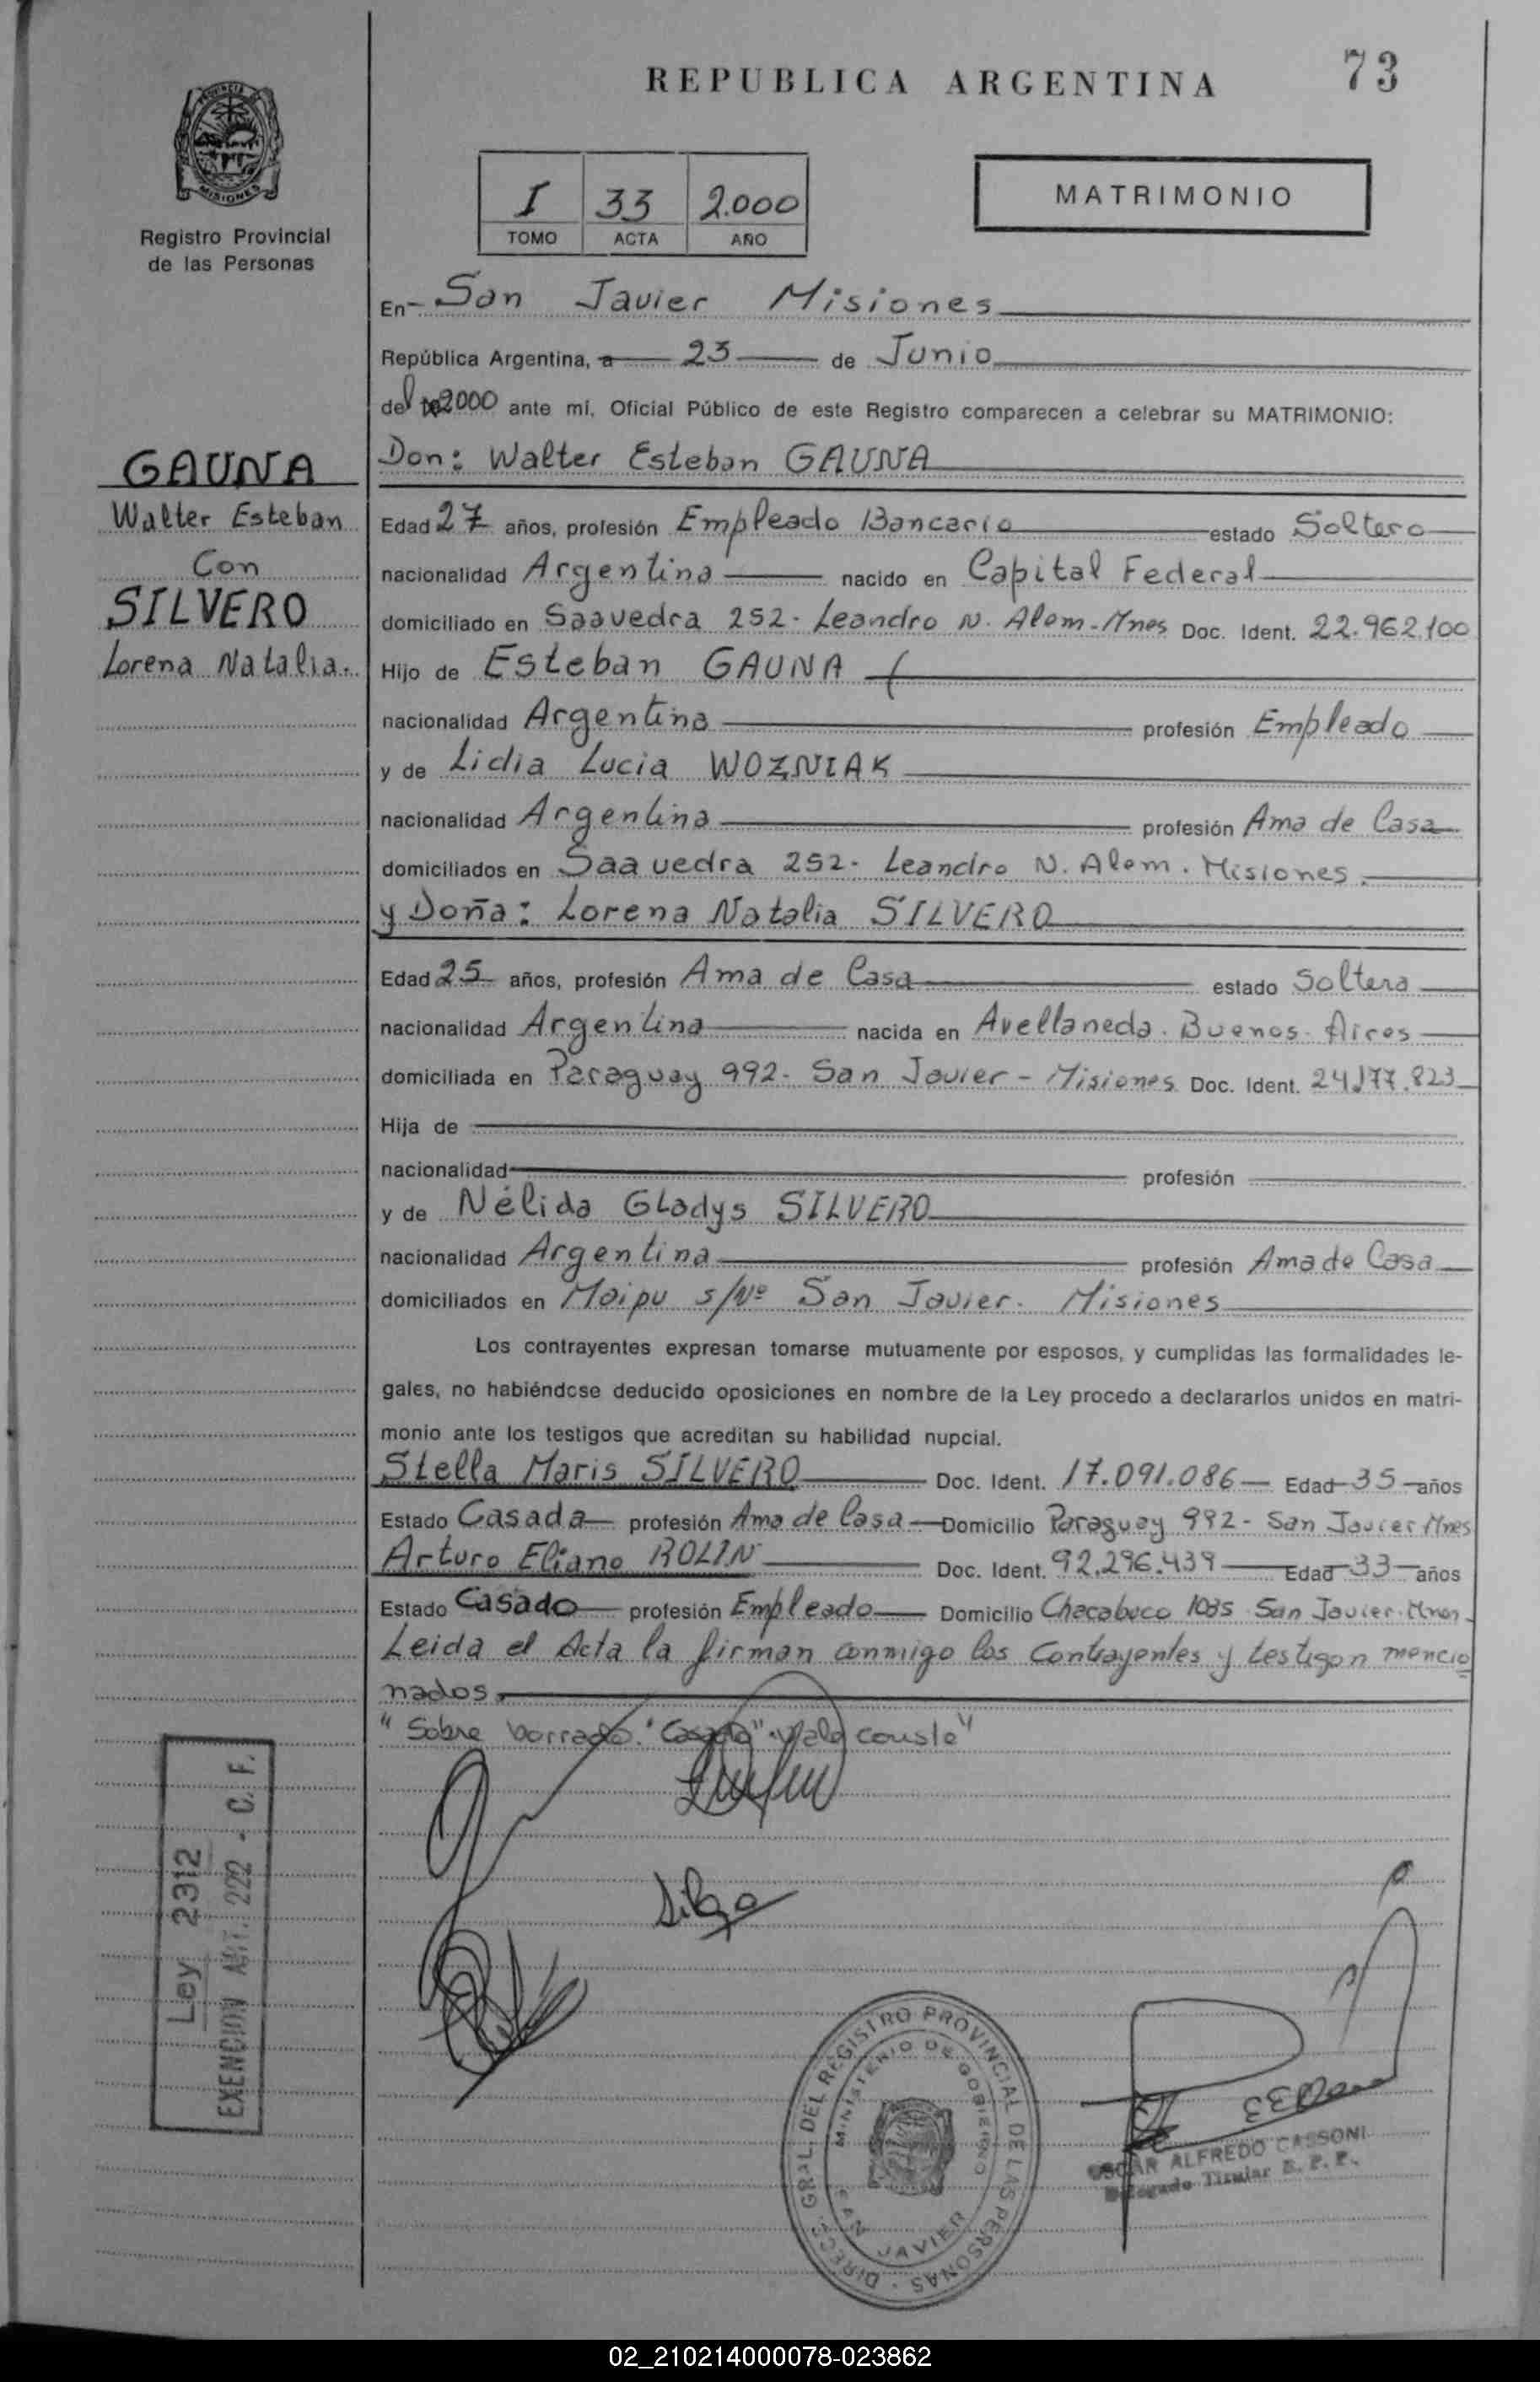 REPUBLICA ARGENTINA
73
PROVINCIA DE
MISIONES
Registro Provincial
de las Personas
I 33 2.000
TOMO ACTA AÑO
MATRIMONIO
En San Javier Misiones
República Argentina, a 23 de Junio
del 2000 ante mí, Oficial Público de este Registro comparecen a celebrar su MATRIMONIO:
GAUNA
Walter Esteban
Con
SILVERO
Lorena Natalia.
Don: Walter Esteban GAUNA
Edad 27 años, profesión Empleado Bancario estado Soltero
nacionalidad Argentina nacido en Capital Federal
domiciliado en Saavedra 252- Leandro N. Alem-Mnes Doc. Ident. 22.962.100
Hijo de Esteban GAUNA
nacionalidad Argentina profesión Empleado
y de Lidia Lucia WOZNIAK
nacionalidad Argentina profesión Ama de Casa
domiciliados en Saavedra 252- Leandro N. Alem. Misiones.
y Doña: Lorena Natalia SILVERO
Edad 25 años, profesión Ama de Casa estado Soltera
nacionalidad Argentina nacida en Avellaneda. Buenos Aires
domiciliada en Paraguay 992- San Javier - Misiones Doc. Ident. 24.177.823
Hija de
nacionalidad profesión
y de Nélida Gladys SILVERO
nacionalidad Argentina profesión Ama de Casa
domiciliados en Maipu s/Nº San Javier. Misiones
Los contrayentes expresan tomarse mutuamente por esposos, y cumplidas las formalidades le-
gales, no habiéndose deducido oposiciones en nombre de la Ley procedo a declararlos unidos en matri-
monio ante los testigos que acreditan su habilidad nupcial.
Stella Maris SILVERO Doc. Ident. 17.091.086 Edad 35 años
Estado Casada profesión Ama de Casa Domicilio Paraguay 992- San Javier Mnes
Arturo Eliano ROLIN Doc. Ident. 92.296.439 Edad 33 años
Estado Casado profesión Empleado Domicilio Chacabuco 1035 San Javier. Mnes.
Leida el Acta la firman conmigo los Contrayentes y testigos mencio
nados.
"Sobre borrado. "Casado" Vale conste"
Ley 2312
EXENCION ART. 222 - C. F.
DIRECC. GRAL. DEL REGISTRO PROVINCIAL DE LAS PERSONAS
MINISTERIO DE GOBIERNO
SAN JAVIER
OSCAR ALFREDO CASSONI
Delegado Titular R. P. P.
02_210214000078-023862